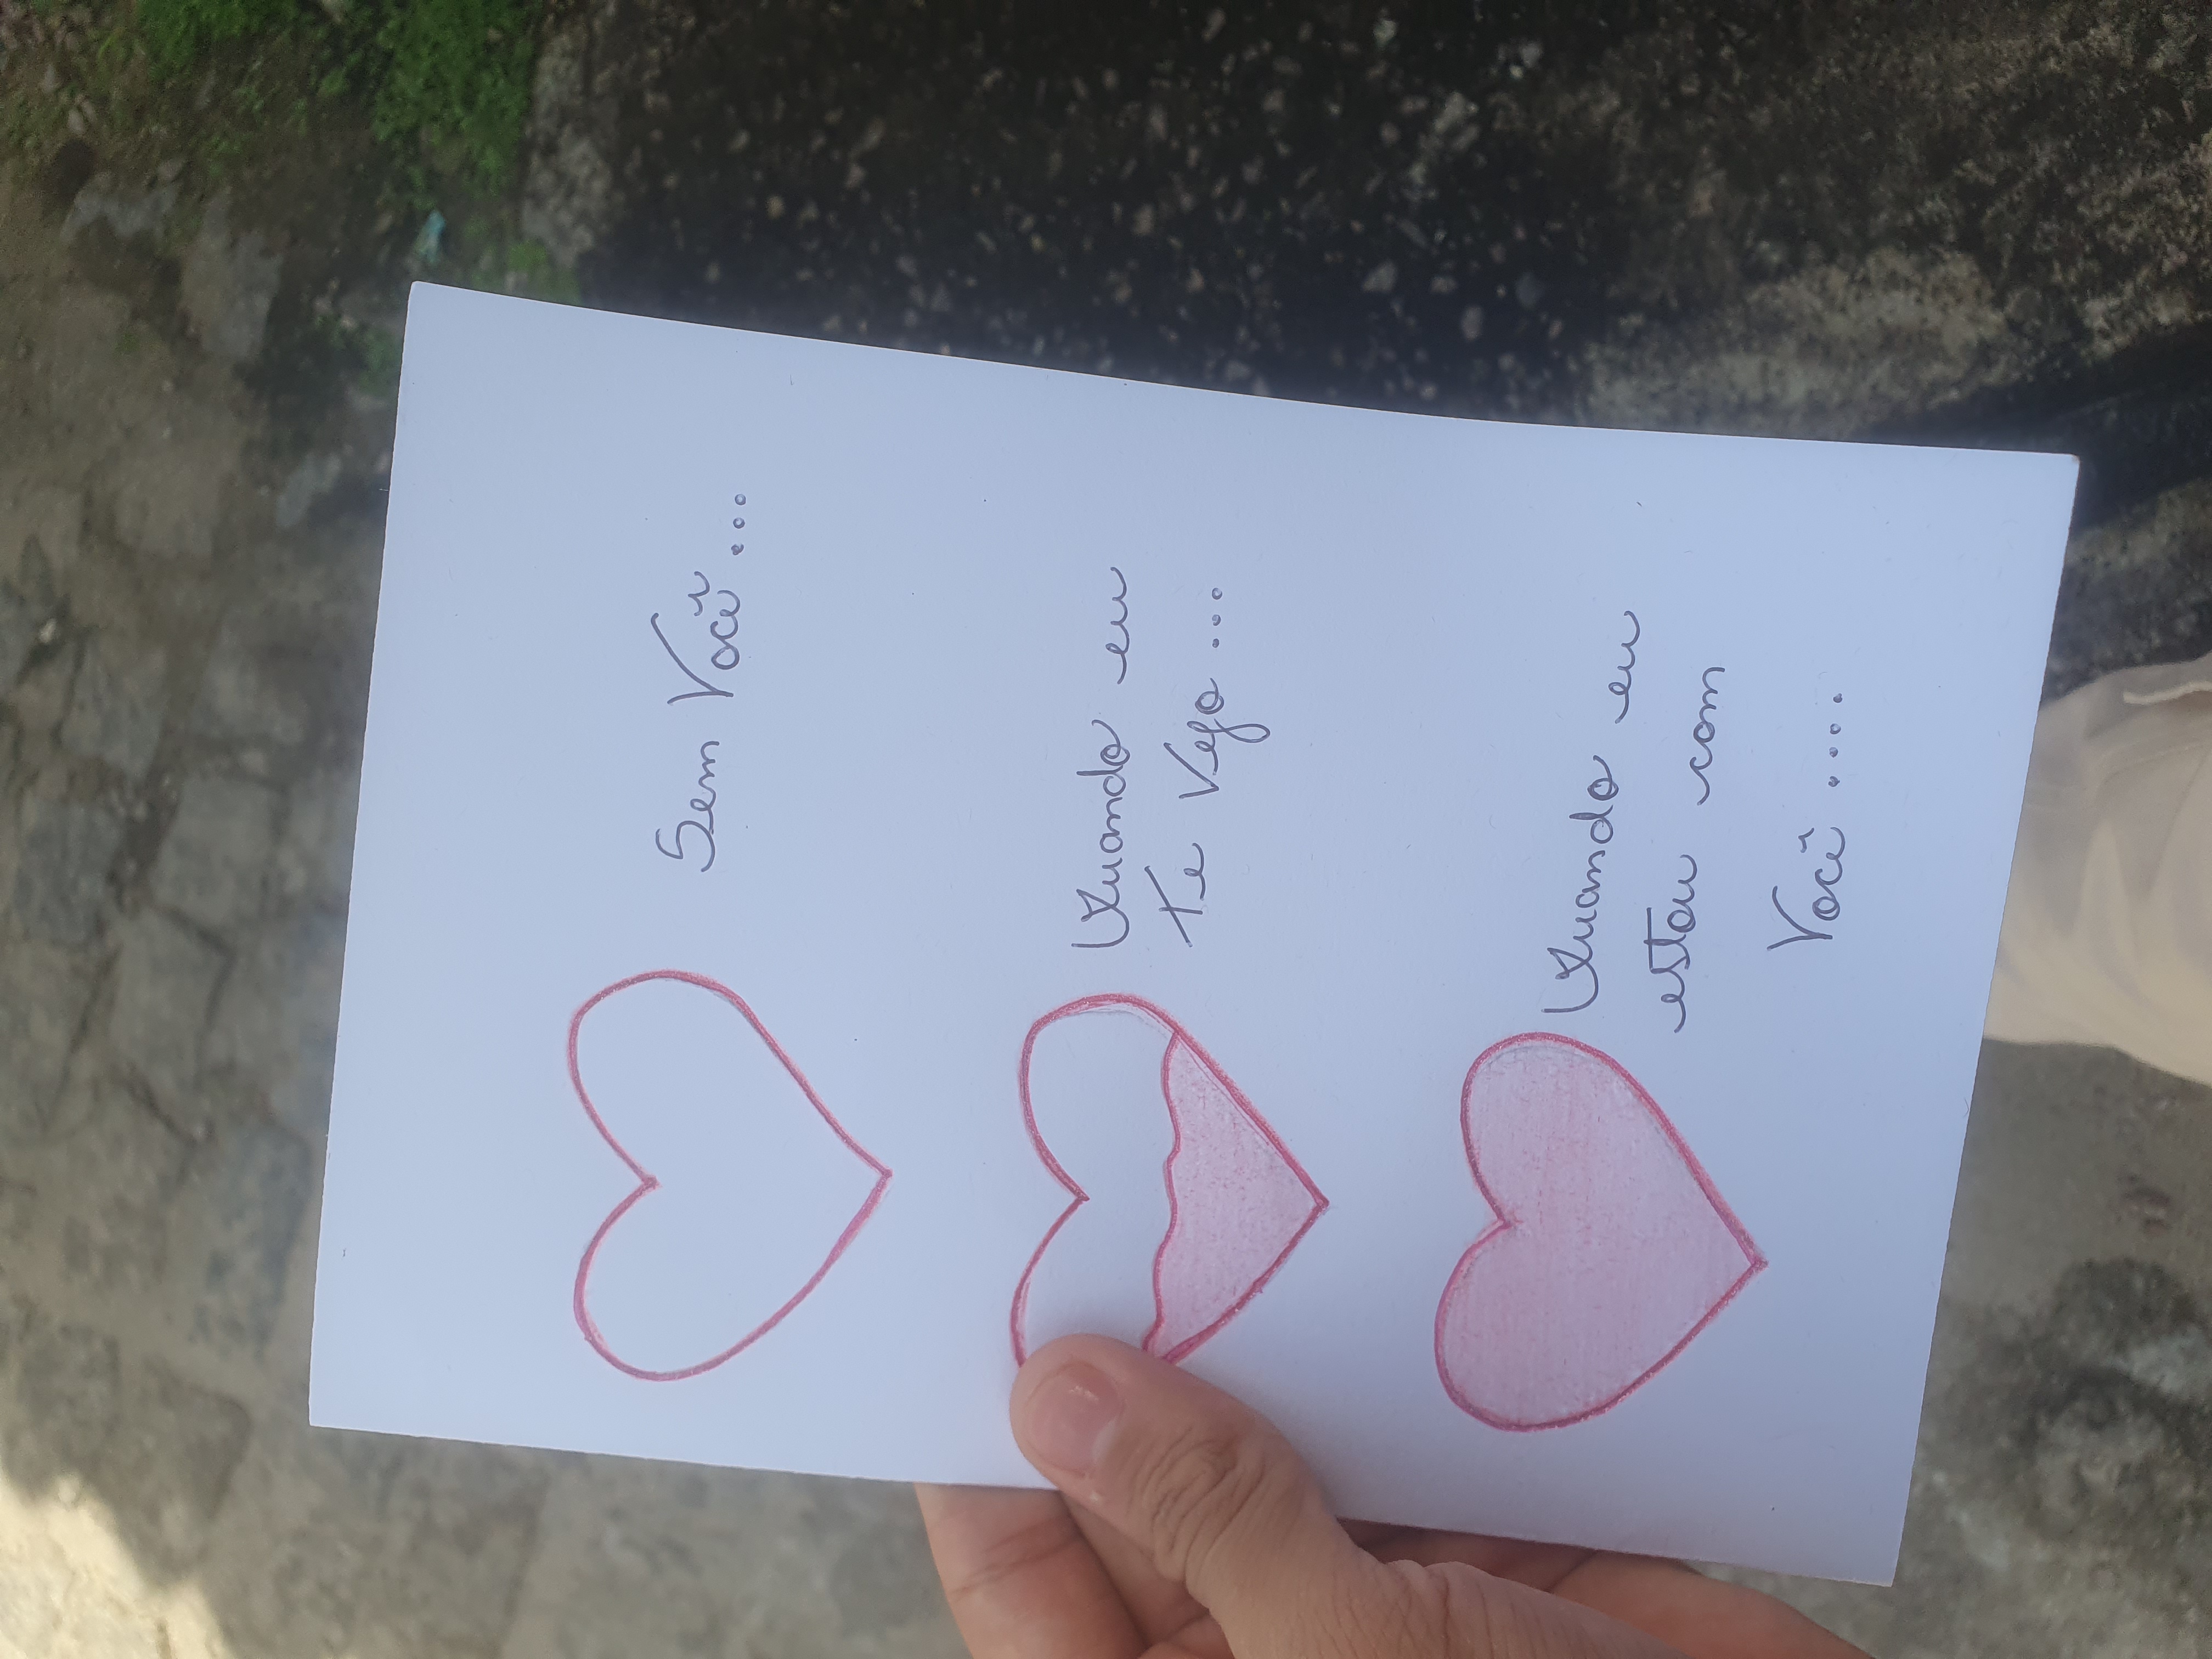 Sem Você...
Quando eu
te Vejo ...
Quando eu
estou com
Você ....